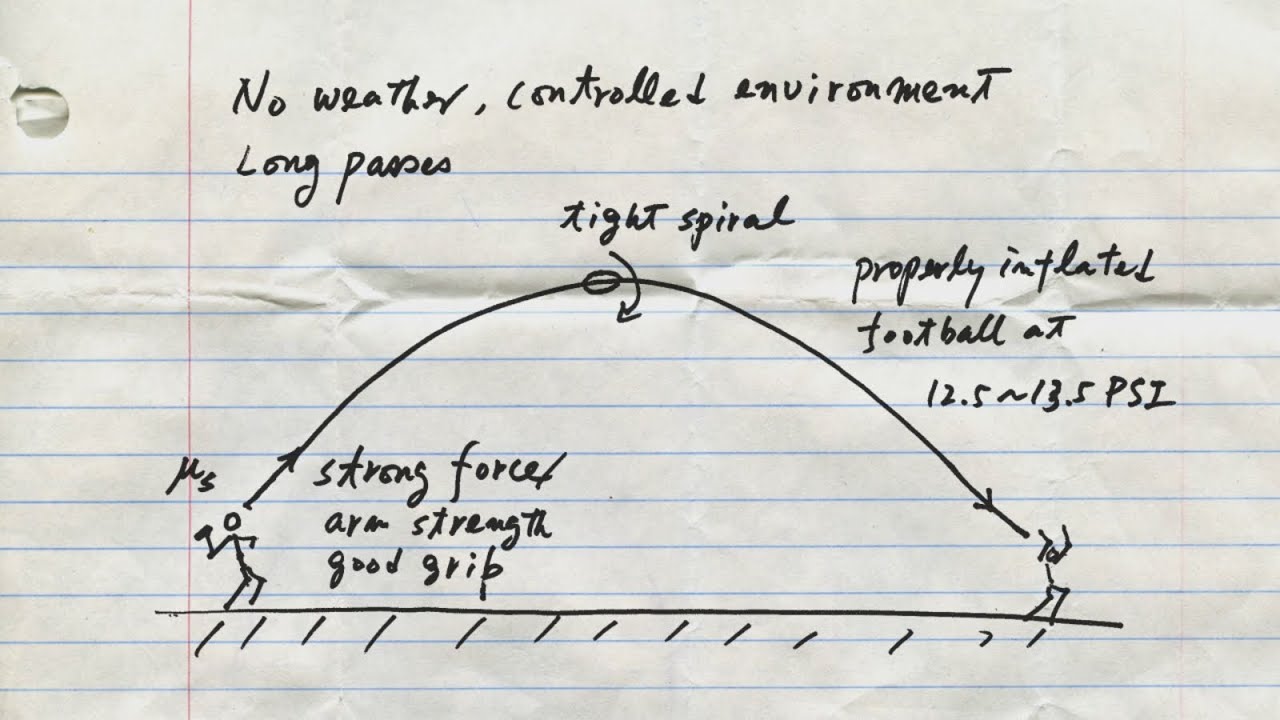 No weather, controlled environment
Long passes
tight spiral
properly inflated
football at
12.5~13.5 PSI
μs
strong forces
arm strength
good grip